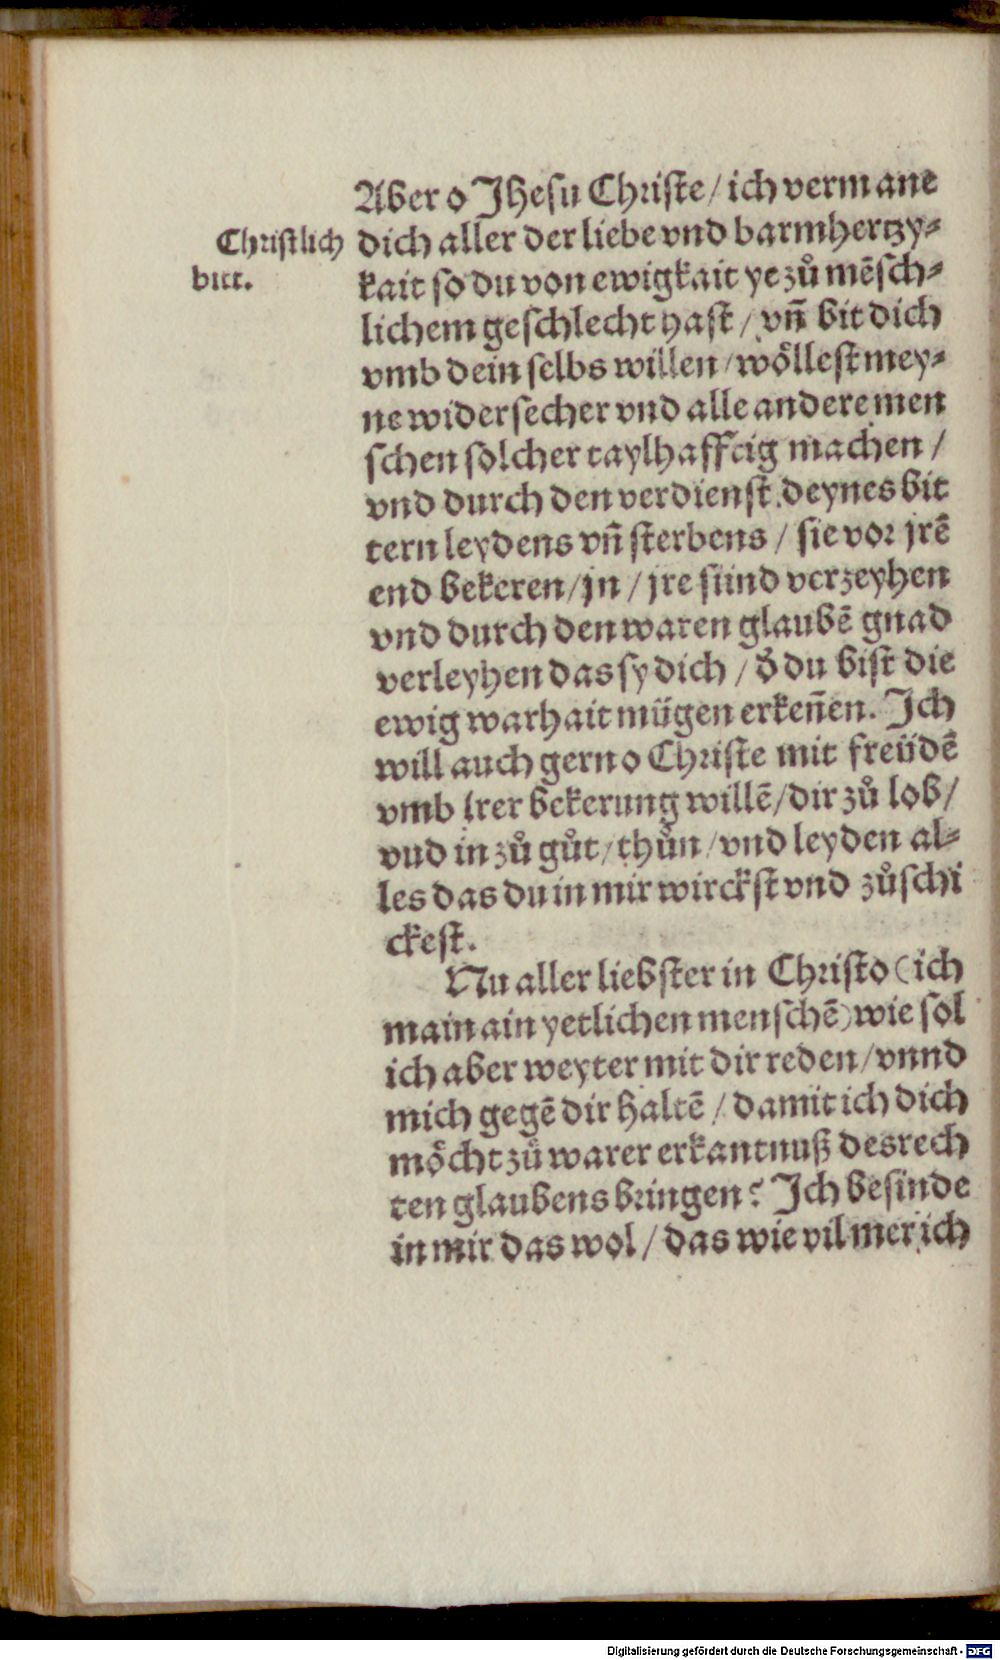 Aber o Jhesu Christe / ich vermane
Christlich
bitt.
dich aller der liebe vnd barmhertzy⸗
kait so du von ewigkait ye zů mēsch⸗
lichem geschlecht hast / vn̄ bit dich
vmb dein selbs willen / wöllest mey⸗
ne widersecher vnd alle andere men
schen solcher taylhafftig machen /
vnd durch den verdienst deynes bit
tern leydens vn̄ sterbens / sie vor jrē
end bekeren / jn / jre sünd verzeyhen
vnd durch den waren glaubē gnad
verleyhen das sy dich / d̄ du bist die
ewig warhait mügen erken̄en. Ich
will auch gern o Christe mit freüdē
vmb irer bekerung willē / dir zů lob /
vud in zů gůt / thůn / vnd leyden al⸗
les das du in mir wirckst vnd zůschi
ckest.
Nu aller liebster in Christo (ich
main ain yetlichen menschē) wie sol
ich aber weyter mit dir reden / vnnd
mich gegē dir haltē / damit ich dich
möcht zů warer erkantnuß des rech
ten glaubens bringen? Ich befinde
in mir das wol / das wie vil mer ich
Digitalisierung gefördert durch die Deutsche Forschungsgemeinschaft - DFG